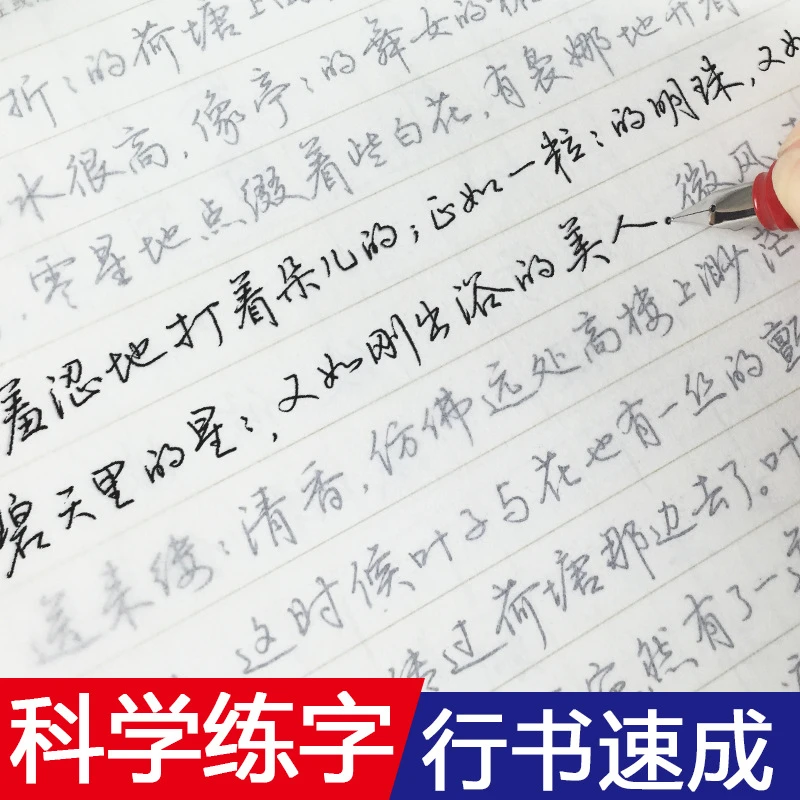 折：的荷塘上
水很高，像亭：的舞女的
，零星地点缀着些白花，有袅娜地开着
羞涩地打着朵儿的；正如一粒：的明珠，又如
碧天里的星：，又如刚出浴的美人。微风
送来缕：清香，仿佛远处高楼上渺茫
这时候叶子与花也有一丝的颤
过荷塘那边去了。叶
宛然有了一
科学练字 行书速成